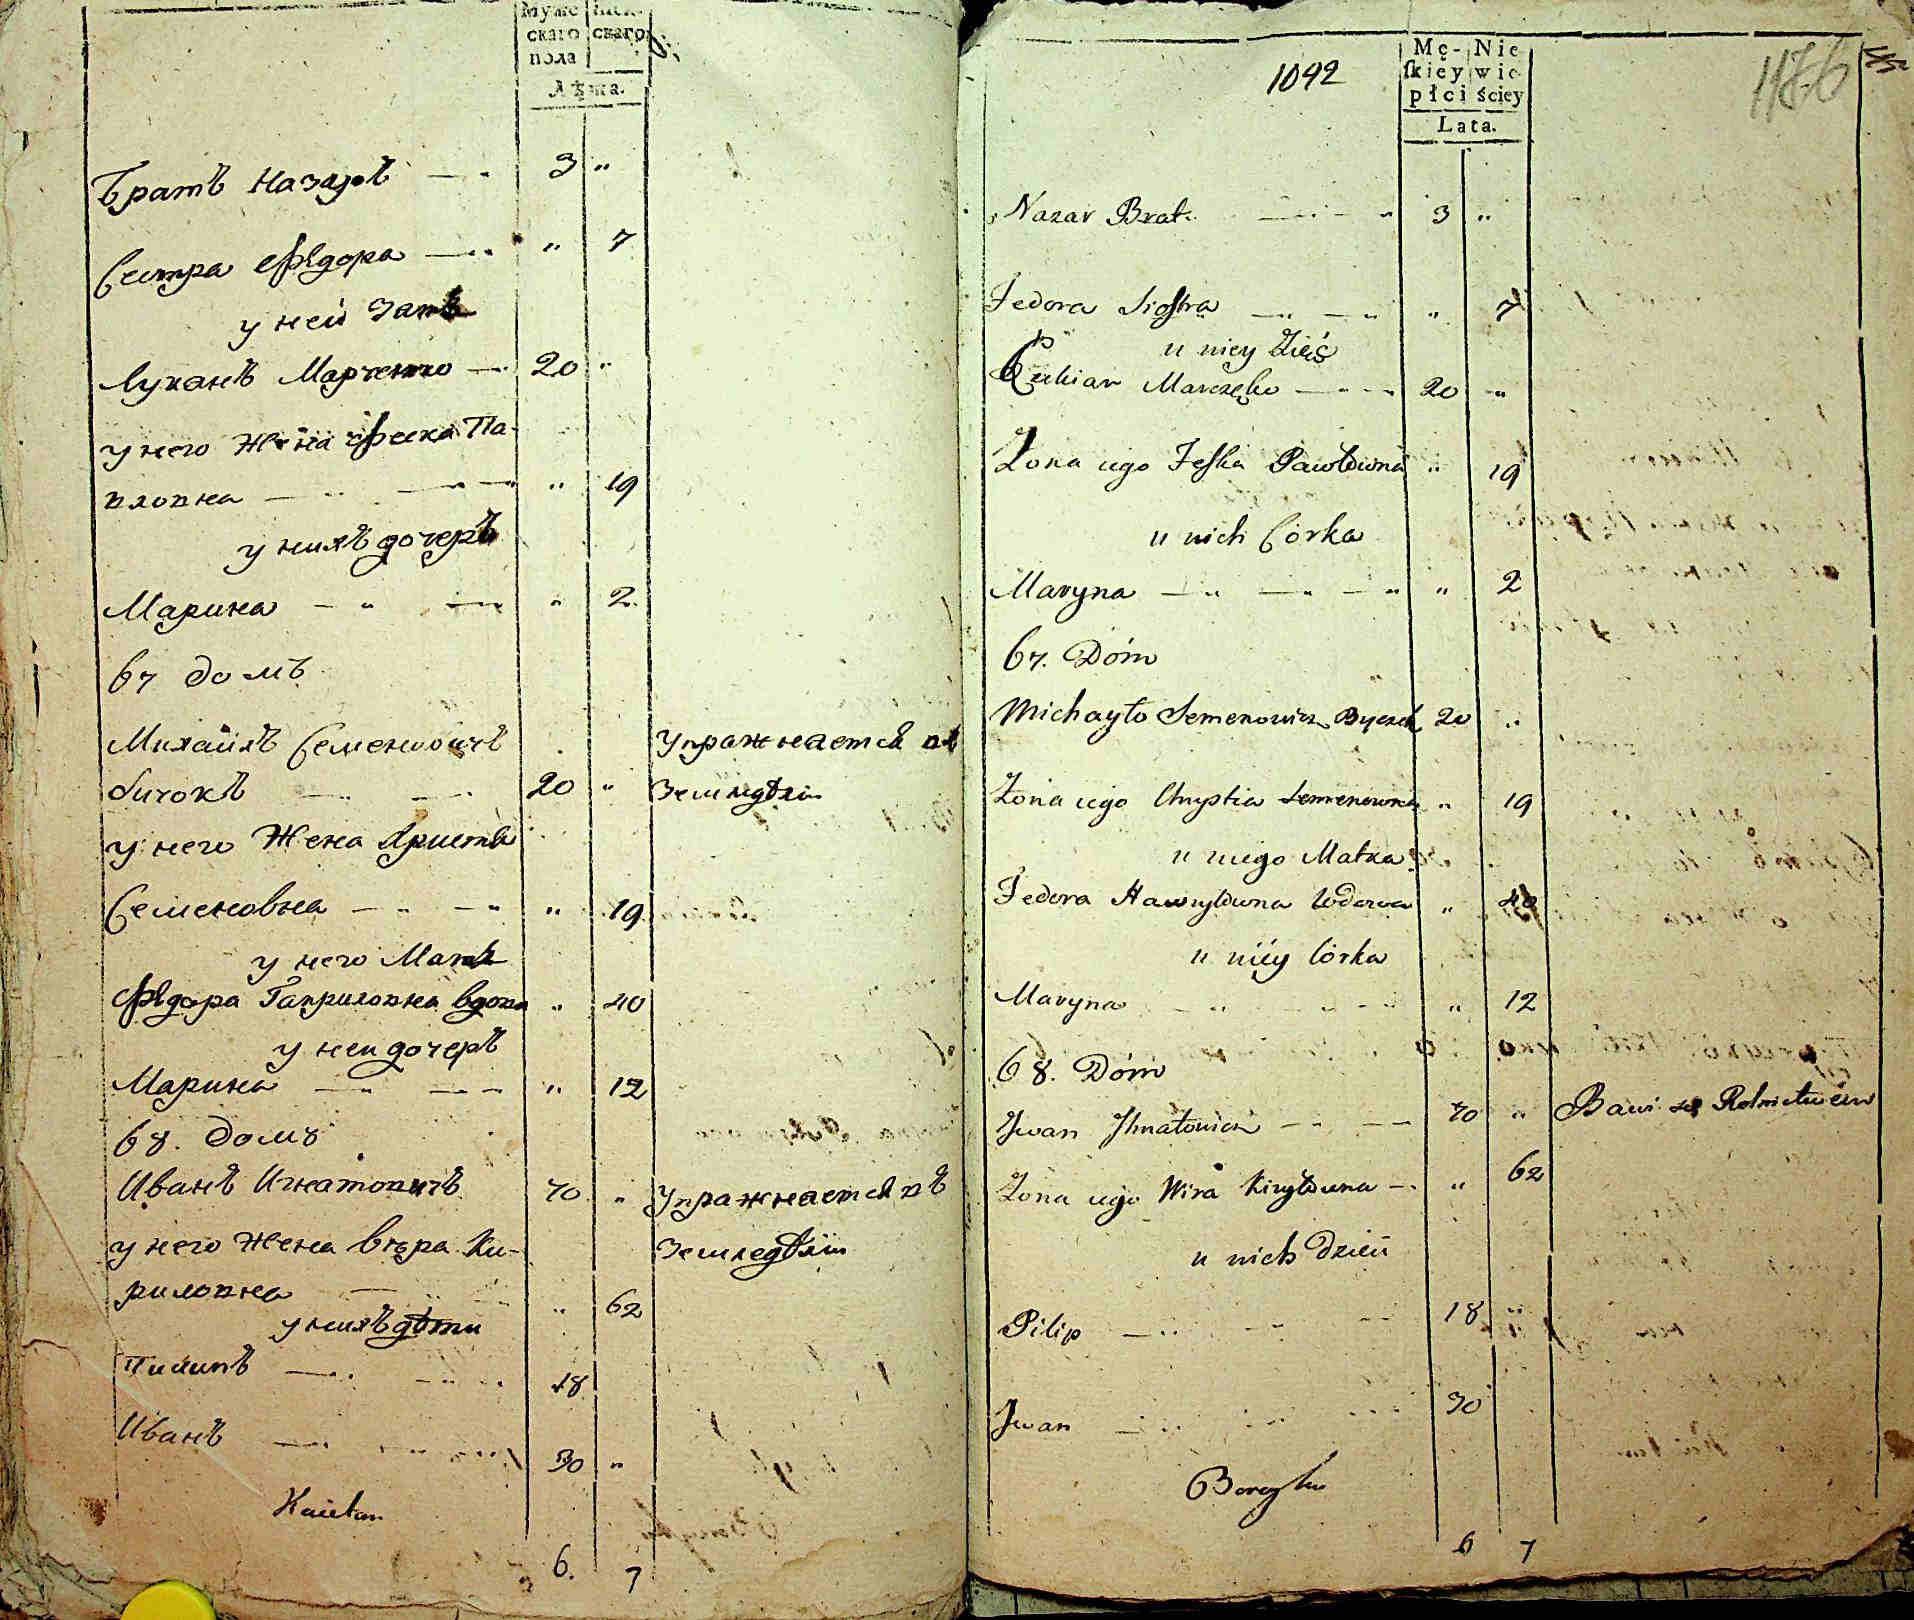 Муже
скаго
пола
скаго
Лѣта.
Братъ Назаръ 3 "
Сестра Ѳедора " 7
у ней Зять
Луканъ Марченко 20 "
у него Жена Феска Па-
вловна " 19
у нихъ дочеръ
Марина " 2
67 домъ
Михайлъ Семеновичъ Упражнаетса въ
бичокъ 20 " Земледѣліи
у него Жена Христя
Семеновна " 19
у него Мать
Ѳедора Гавриловна вдова " 40
у неи дочеръ
Марина " 12
68. домъ
Иванъ Игнатовичъ 70 " Упражнается въ
у него Жена Вѣра Ки- Земледѣліи
риловна " 62
у нихъ дѣти
Пилипъ 18
Иванъ 30 "
6. 7
1092
Mę- Nie
ſkiey wie-
płci ściey
Lata.
Nazar Brat 3 "
Fedora Siostra " 7
u niey Zięć
Łukian Marczęko 20 "
Żona iego Feſka Pawłowna " 19
u nich Córka
Maryna " 2
67. Dóm
Michayło Semenowicz Byczek 20 "
Żona iego Chrystia Semenowna " 19
u niego Matka
Fedora Hawryłowna Wdowa " 40
u niéy Córka
Maryna " 12
68. Dóm
Jwan Jhnatowicz 70 " Bawi się Rolnictwem
Żona iego Wira Kiryłowna " 62
u nich Dzieci
Pilip 18 "
Jwan 30
6 7